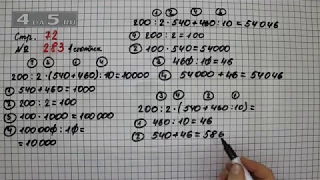 4 на 5.ru
Стр. 72
№ 283 1 столбик
200 : 2 · (540 + 460) : 10 = 10000
① 540 + 460 = 1000
② 200 : 2 = 100
③ 100 · 1000 = 100000
④ 100000 : 10 =
= 10000
200 : 2 · 540 + 460 : 10 = 54046
① 200 : 2 = 100
② 100 · 540 = 54000
③ 460 : 10 = 46
④ 54000 + 46 = 54046
③ ④ ② ①
200 : 2 · (540 + 460 : 10) =
① 460 : 10 = 46
② 540 + 46 = 586